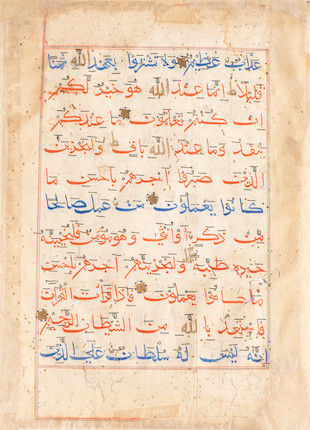 عذاب عظيم ولا تشتروا بعهد الله ثمنا
قليلا انما عند الله هو خير لكم
ان كنتم تعلمون ما عندكم
ينفد وما عند الله باق ولنجزين
الذين صبروا اجرهم باحسن ما
كانوا يعملون من عمل صالحا
من ذكر او انثى وهو مومن فلنحيينه
حيوة طيبة ولنجزينهم اجرهم باحسن
ما كانوا يعملون فاذا قرات القران
فاستعذ بالله من الشيطان الرجيم
انه ليس له سلطان على الذين